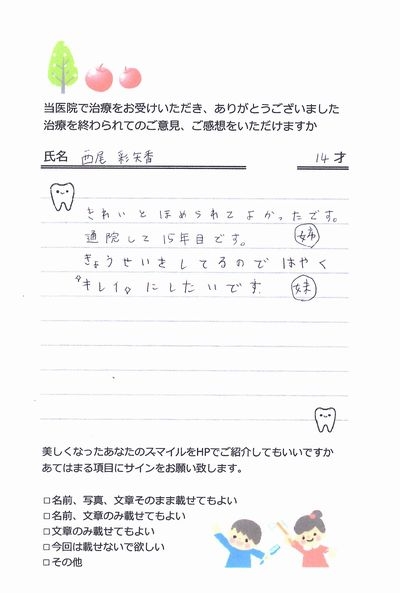 当医院で治療をお受けいただき、ありがとうございました
治療を終わられてのご意見、ご感想をいただけますか
氏名 西尾 彩矢香 14才
きれいとほめられてよかったです。
通院して15年目です。 姉
きょうせいをしてるのではやく
キレイにしたいです 妹
美しくなったあなたのスマイルをHPでご紹介してもいいですか
あてはまる項目にサインをお願い致します。
□名前、写真、文章そのまま載せてもよい
□名前、文章のみ載せてもよい
□文章のみ載せてもよい
□今回は載せないで欲しい
□その他